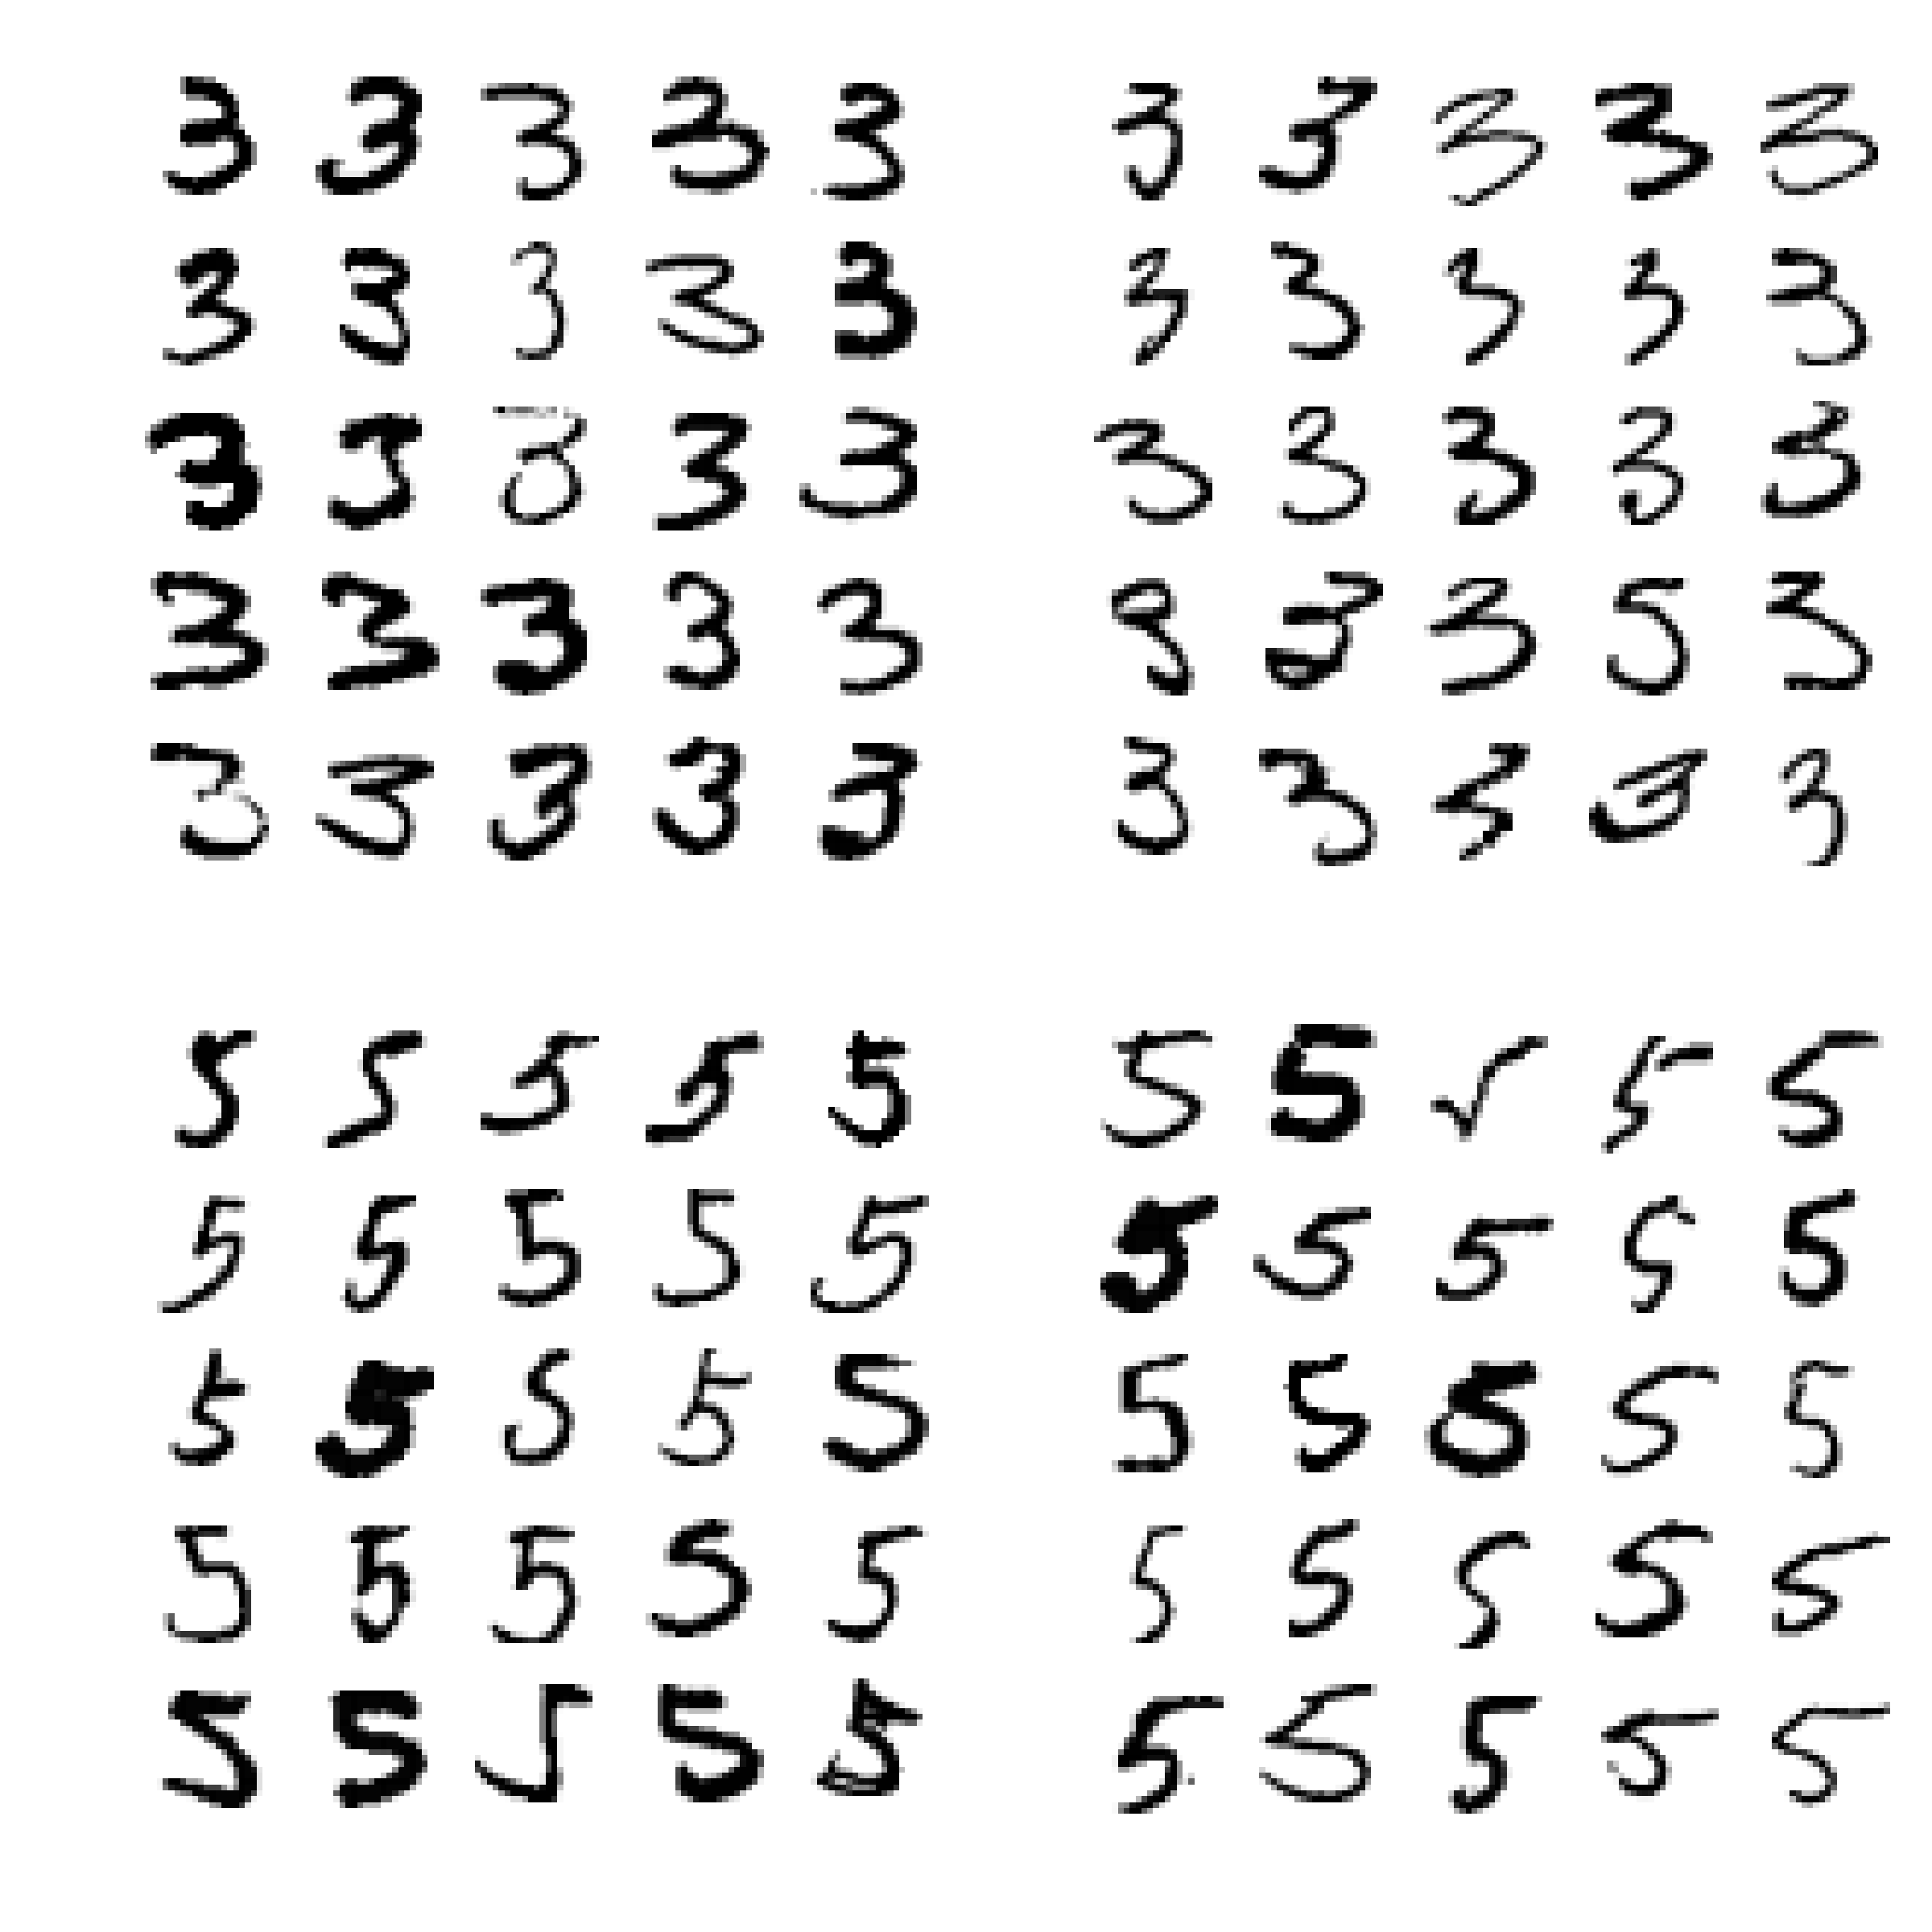 3 3 3 3 3 3 3 3 3 3
3 3 3 3 3 3 3 3 3 3
3 3 3 3 3 3 3 3 3 3
3 3 3 3 3 3 3 5 3
3 3 3 3 3 3 3 3 3 3
5 5 5 5 5 5 5 5 5
5 5 5 5 5 5 5 5 5 5
5 5 5 5 5 5 5 5 5 5
5 5 5 5 5 5 5 5 5 5
5 5 5 5 5 5 5 5 5